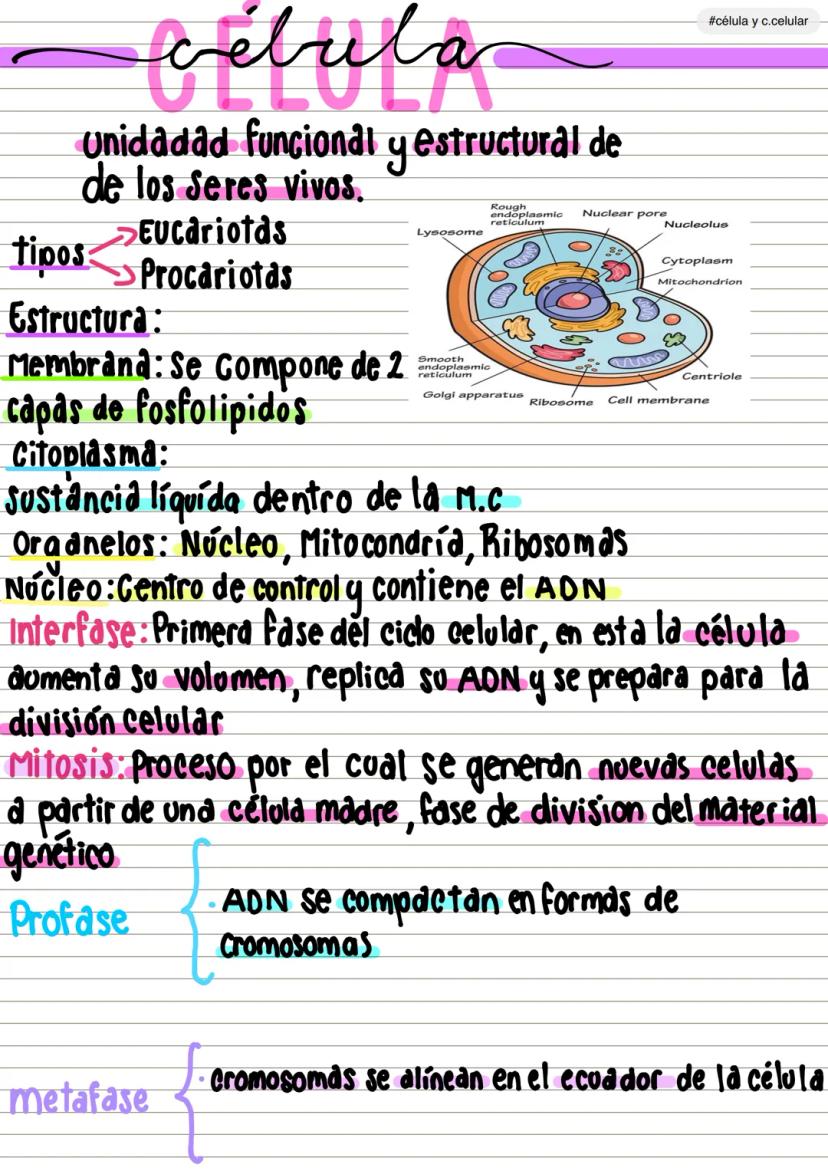 #célula y c.celular
CÉLULA
célula
unidadad funcional y estructural de
de los seres vivos.
Tipos
Eucariotas
Procariotas
Rough endoplasmic reticulum
Nuclear pore
Nucleolus
Lysosome
Cytoplasm
Mitochondrion
Smooth endoplasmic reticulum
Centriole
Golgi apparatus
Ribosome
Cell membrane
Estructura:
Membrana: Se compone de 2
capas de fosfolipidos
Citoplasma:
sustancia líquida dentro de la M.C
Organelos: Núcleo, Mitocondría, Ribosomas
Núcleo: Centro de control y contiene el ADN
Interfase: Primera fase del ciclo celular, en esta la célula
aumenta su volumen, replica su ADN y se prepara para la
división celular
Mitosis: Proceso por el cual se generan nuevas celulas
a partir de una célula madre, fase de division del material
genético
Profase
· ADN se compactan en formas de
cromosomas
metafase
· cromosomas se alinean en el ecuador de la célula